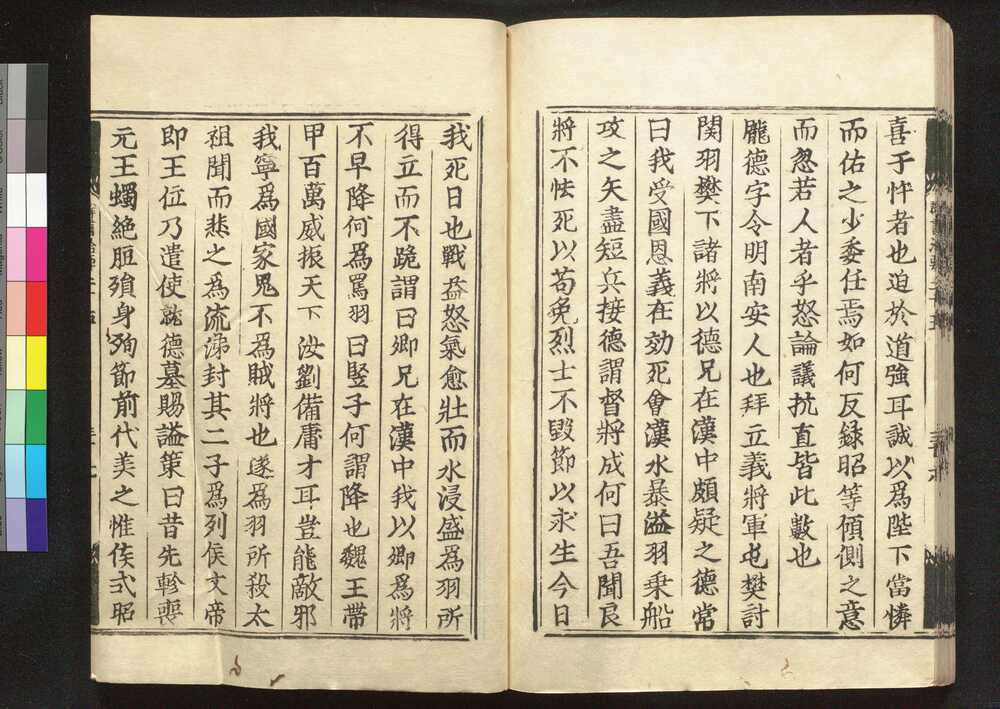 喜于忤者也迫於道強耳誠以爲陛下當憐
而佑之少委任焉如何反録昭等傾側之意
而忽若人者乎怒論議抗直皆此數也
龐德字令明南安人也拜立義將軍屯樊討
関羽樊下諸將以德兄在漢中頗疑之德常
曰我受國恩義在効死會漢水暴溢羽乗船
攻之矢盡短兵接德謂督將成何曰吾聞良
將不怯死以苟免烈士不毀節以求生今日
我死日也戰益怒氣愈壯而水浸盛爲羽所
得立而不跪謂曰卿兄在漢中我以卿爲將
不早降何爲罵羽曰竪子何謂降也魏王帶
甲百萬威振天下汝劉備庸才耳豈能敵邪
我寧爲國家鬼不爲賊將也遂爲羽所殺太
祖聞而悲之爲流涕封其二子爲列侯文帝
即王位乃遣使就德墓賜謚策曰昔先軫喪
元王蠋絶脰殞身殉節前代美之惟侯式昭